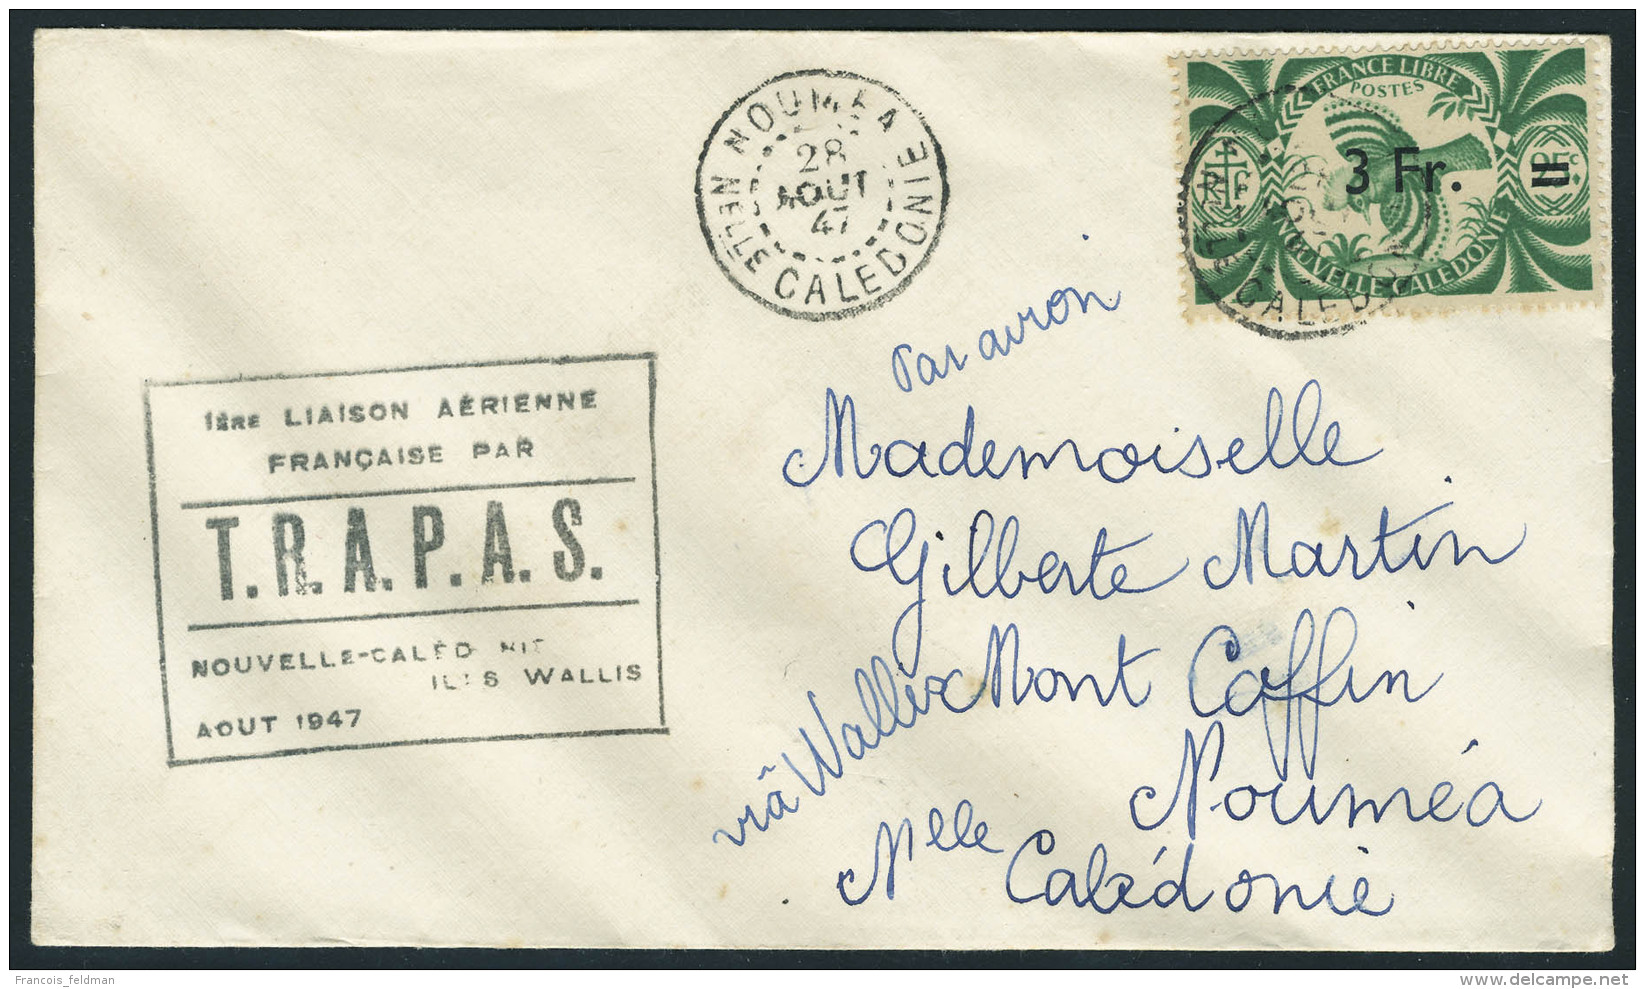 FRANCE LIBRE
POSTES
3 Fr.
25c
NOUVELLE CALEDONIE
NOUMÉA
28
AOUT
47
NELLE CALEDONIE
NELLE CALED
Par avion
1ÈRE LIAISON AÉRIENNE
FRANÇAISE PAR
T.R.A.P.A.S.
NOUVELLE-CALÉD NIE
ILES WALLIS
AOUT 1947
Mademoiselle
Gilberte Martin
Mont Coffin
Nouméa
Nlle Calédonie
viâ Wallis
Francois_feldman
delcampe.net